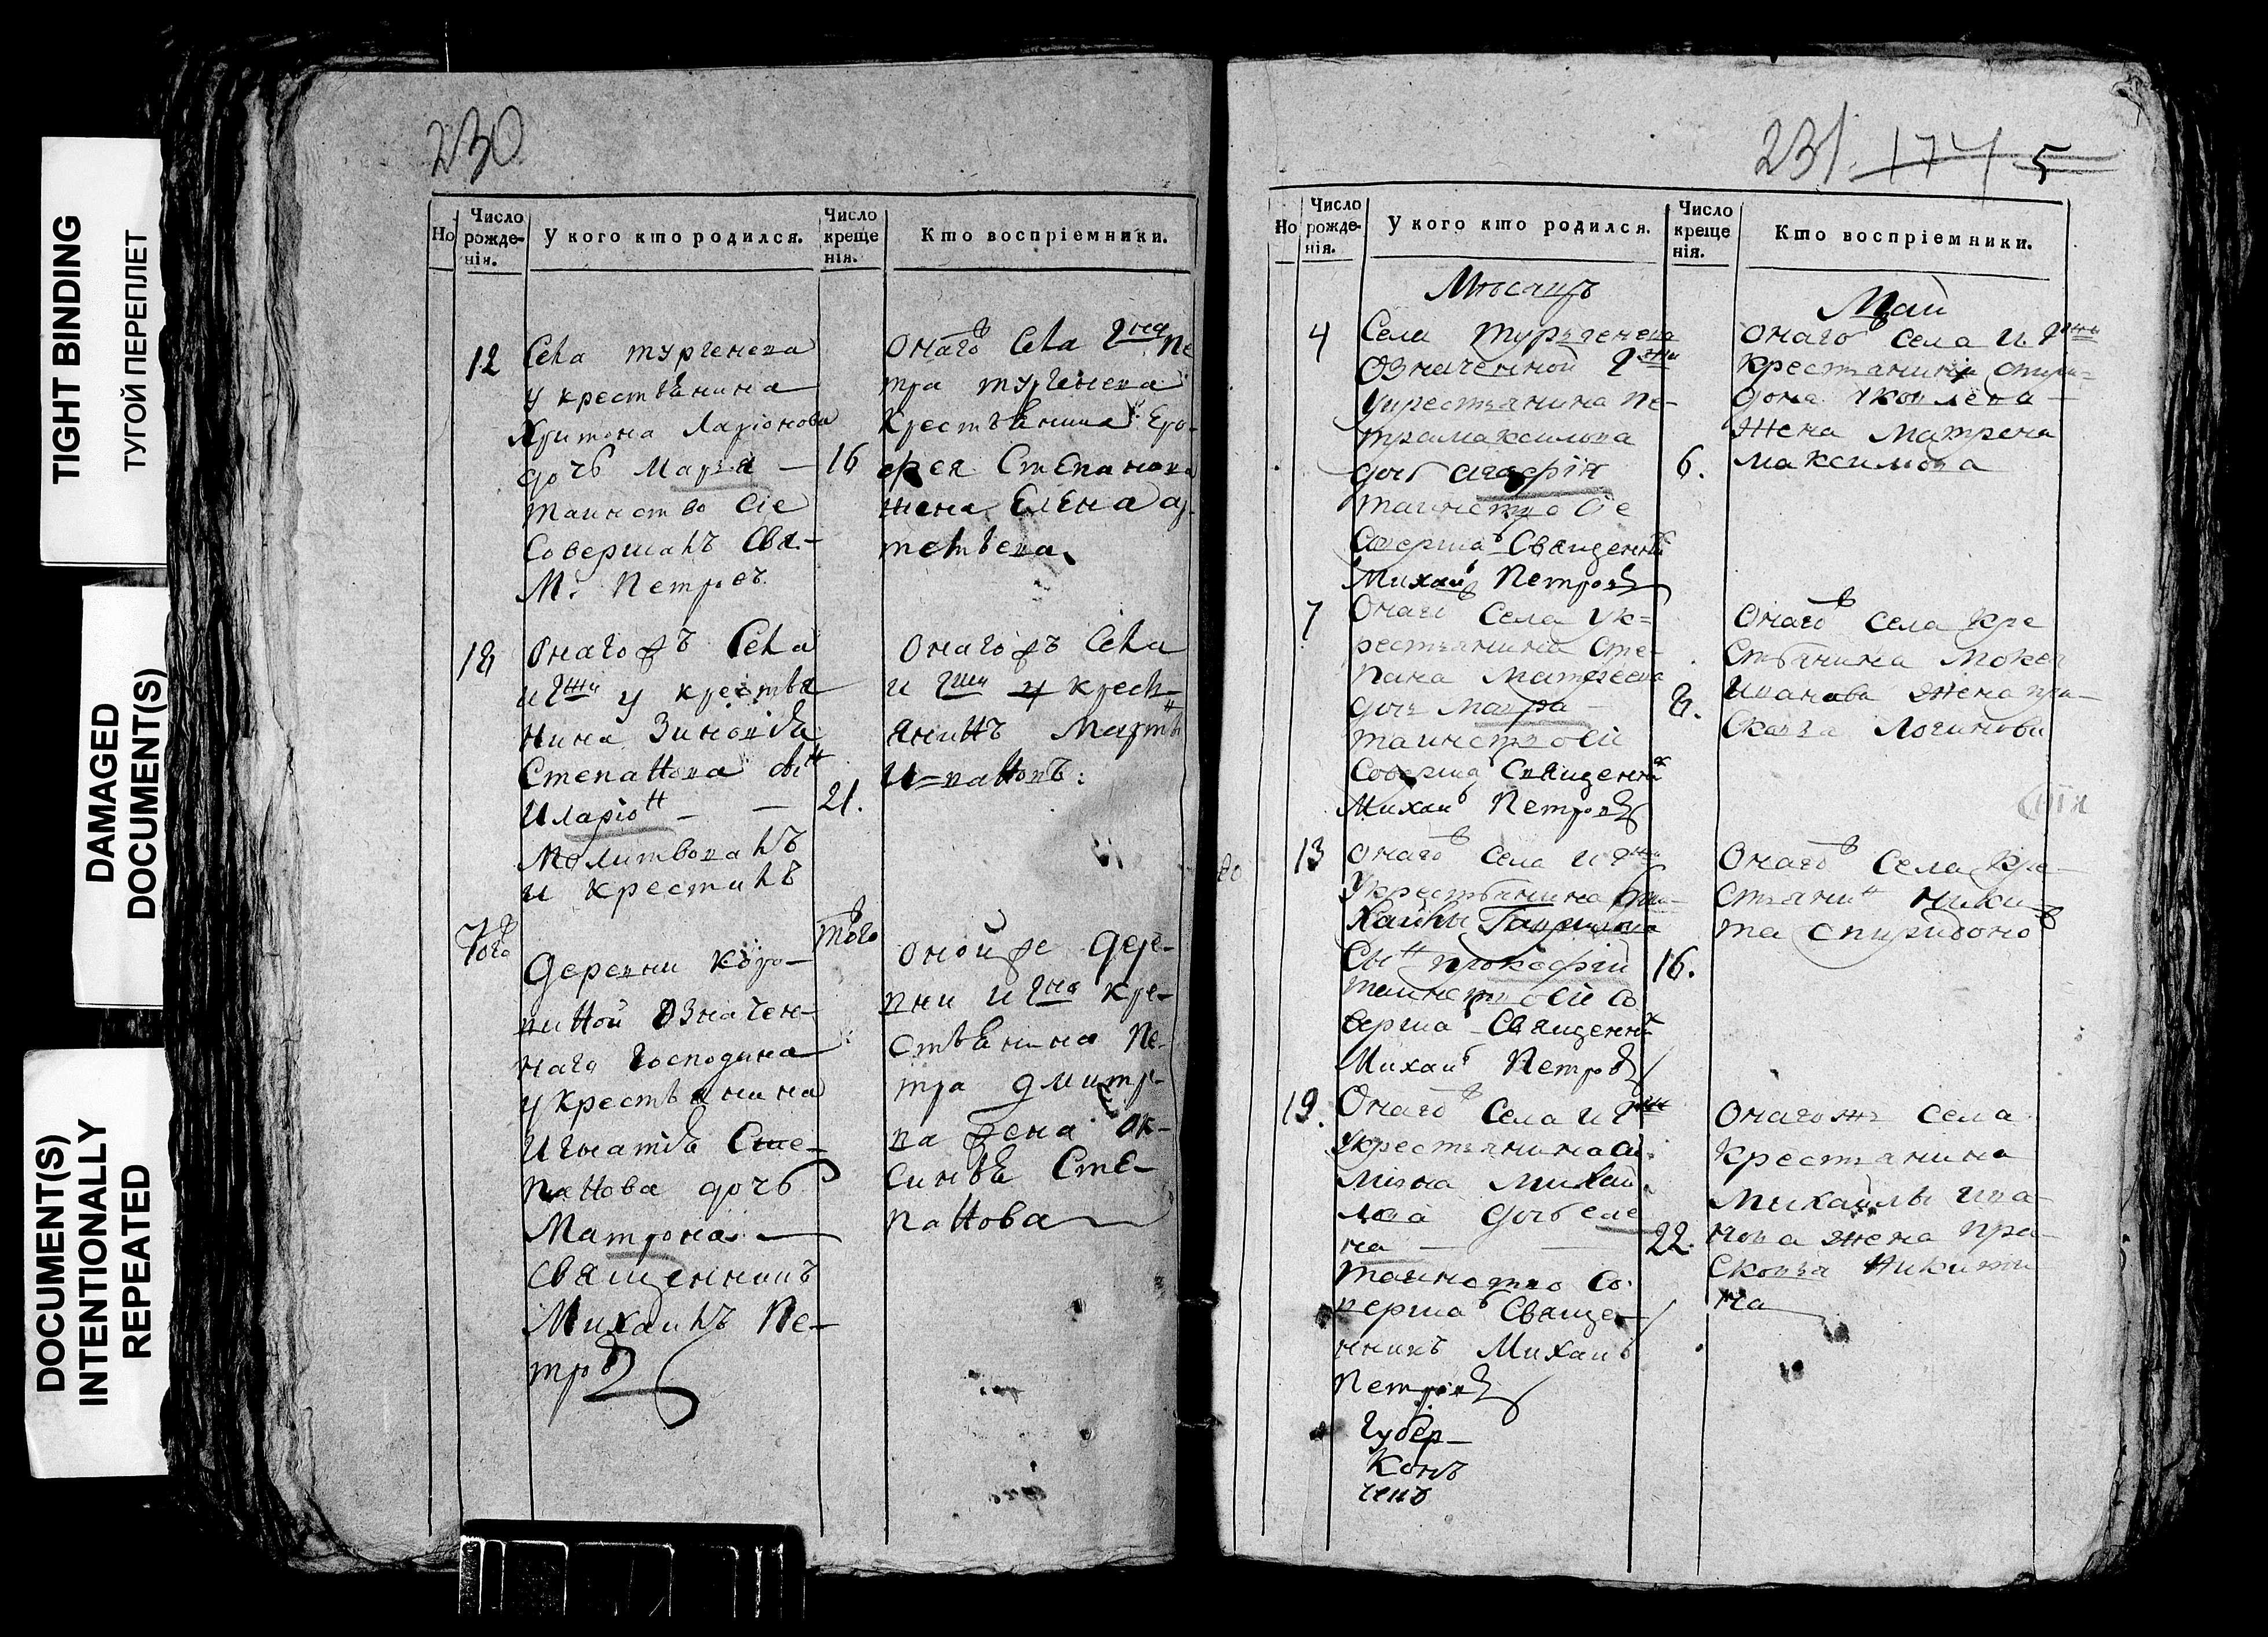 TIGHT BINDING
ТУГОЙ ПЕРЕПЛЕТ
DAMAGED
DOCUMENT(S)
DOCUMENT(S)
INTENTIONALLY
REPEATED
230
Но
Число рожденія.
У кого кто родился.
Число крещенія.
Кто воспріемники.
12
Села тургенева
у крестьянина
Харитона Ларіонова
дочь Марья —
таинство сіе
Совершалъ Свя-
М. Петровъ
16
Онагожъ Села гна Пе
тра тургенева
Крестьянина Еро-
фея Степанова
жена Елена
18
Онагожъ Села
и гжи у крестья
нина Зиновья
Степанова сынъ
Иларіонъ — —
Молитвовалъ
и крестилъ
21.
Онагожъ Села
и гжи у крест-
янинъ Мартынъ
И-вановъ:
Тогожъ
деревни
означен-
наго господина
у крестьянина
Игнатья Сте-
панова дочь
Матрона —
священникъ
Михаилъ Пе-
тровъ
тогожъ
оной же дере-
вни и гна кре-
стьянина Пе-
тра дмитр-
ва жена Ак-
синья Сте-
панова
231 174 5
Но
Число рожденія.
У кого кто родился.
Число крещенія.
Кто воспріемники.
Мѣсяцъ
Май
4
Села Тургенева
означенной гжи
укрестьянина Пе-
тра максимова
дочь агафія
таинство сіе
Соверша Священни
Михаил Петровъ
6.
онагожъ села и гжи
крестьянина спири-
дона
жена матрена
максимова
7
Онагожъ Села ук-
рестьянина Сте-
пана Матвеева
дочь мавра —
таинство сіе
Соверша Священник
Михаил Петровъ
8.
Онагожъ села кре
стьянина Мокея
Иванова жена пра-
сковья Логинова
13
онагожъ села и гжи
Укрестьянина Ми-
хайлы Гаврилова
Сынъ прокофій
таинство сіе со
верша Священник
Михаил Петровъ
16.
Онагожъ Села Кре-
стьянинъ Ники-
та спиридоновъ
19.
Онагожъ Села и гжи
укрестьянина
Михай
лова дочь еле
на — —
таинство со
верша Священ-
никъ Михаил
Петровъ
22.
онагожъ села
крестьянина
михайлы ива-
нова жена пра-
сковья Никити
на